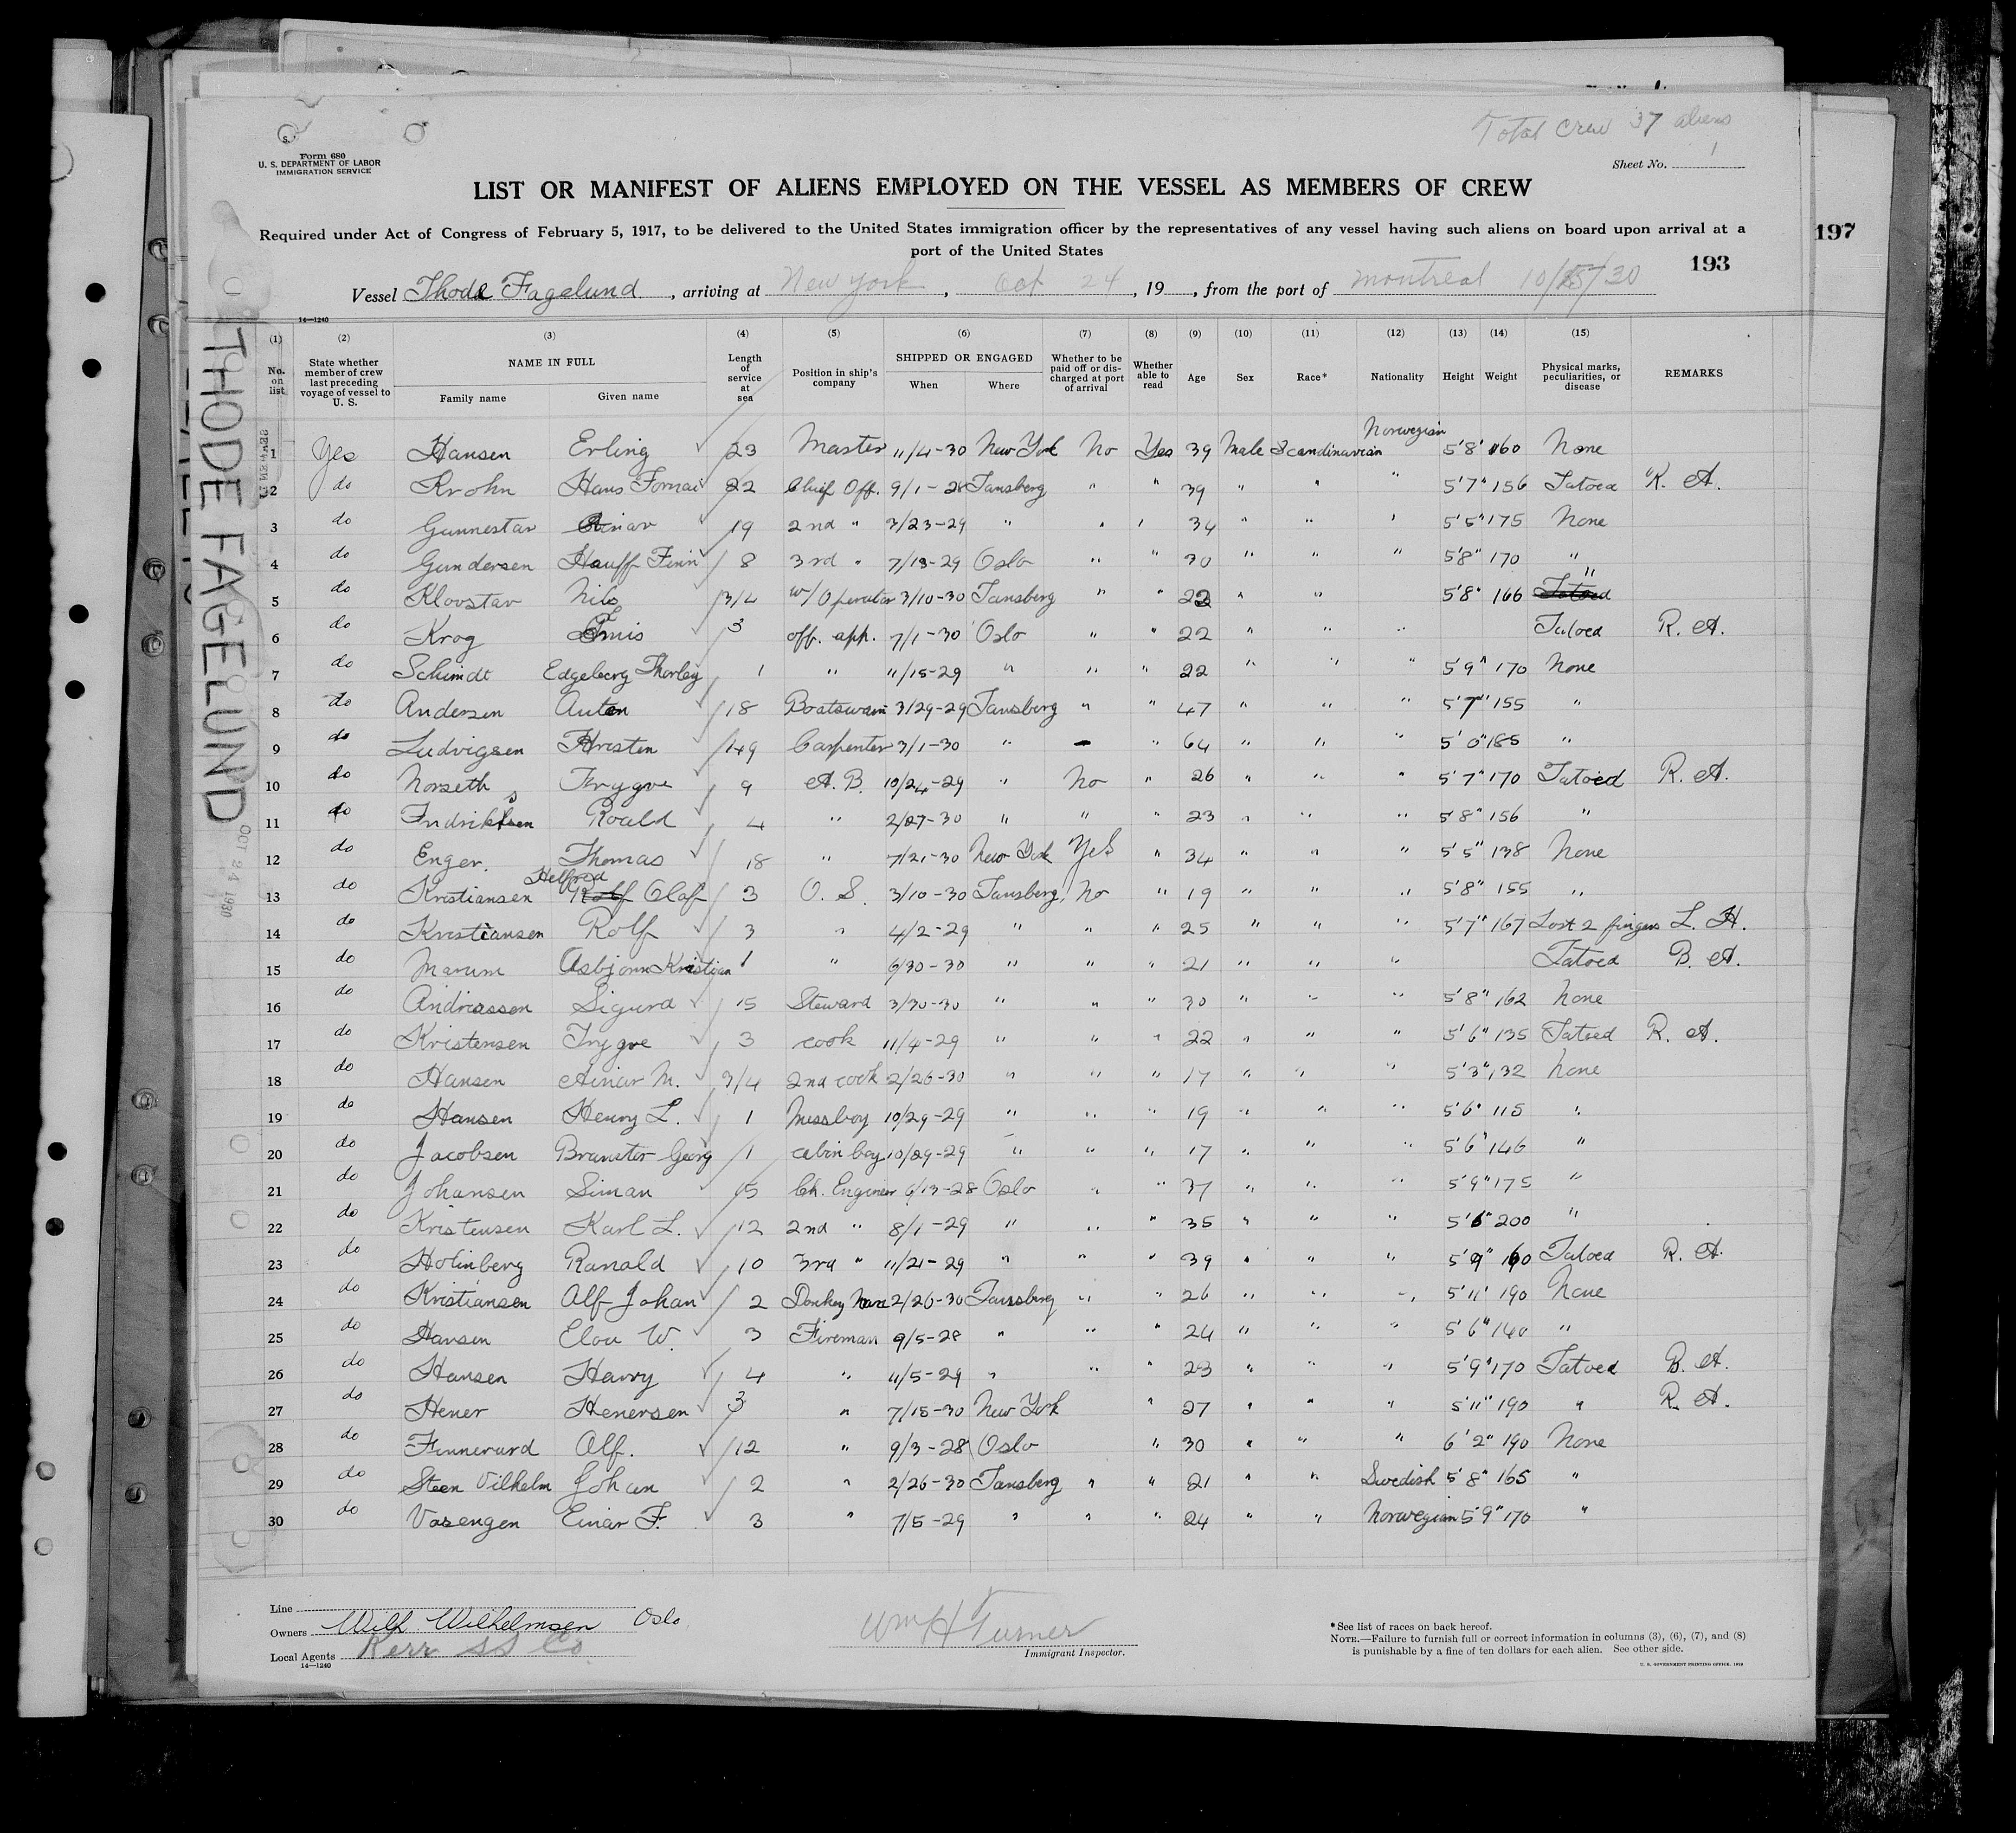 Total Crew 37 aliens
S.
Form 680
U. S. DEPARTMENT OF LABOR
IMMIGRATION SERVICE
Sheet No. 1
LIST OR MANIFEST OF ALIENS EMPLOYED ON THE VESSEL AS MEMBERS OF CREW
Required under Act of Congress of February 5, 1917, to be delivered to the United States immigration officer by the representatives of any vessel having such aliens on board upon arrival at a
port of the United States
197
193
Vessel Thode Fagelund, arriving at New York, Oct 24, 19, from the port of Montreal 10/15/30
14—1240
(1) (2) (3) (4) (5) (6) (7) (8) (9) (10) (11) (12) (13) (14) (15)
No. on list
State whether member of crew last preceding voyage of vessel to U. S.
NAME IN FULL
Family name Given name
Length of service at sea
Position in ship's company
SHIPPED OR ENGAGED
When Where
Whether to be paid off or discharged at port of arrival
Whether able to read
Age Sex Race* Nationality Height Weight
Physical marks, peculiarities, or disease
REMARKS
1 Yes Hansen Erling 23 Master 11/4-30 New York No Yes 39 Male Scandinavian Norwegian 5'8" 160 None
2 do Krohn Hans 22 Chief Off. 9/1-28 Tansberg " " 39 " " " 5'7" 156 Tatoed R. A.
3 do Gunnestav Einar 19 2nd " 3/23-29 " " " 34 " " " 5'5" 175 None
4 do Gundersen Hauff Finn 8 3rd " 7/13-29 Oslo " " 30 " " " 5'8" 170 "
5 do Klovstav Nils 3/4 w/Operator 3/10-30 Tansberg " " 22 " " 5'8" 166 Tatoed "
6 do Krog 3 off. aph. 7/1-30 Oslo " " 22 " " " Tatoed R. A.
7 do Schimdt Edgeberg Thorleg 1 " 11/15-29 " " " 22 " " " 5'9" 170 None
8 do Andersen Anton 18 Boatswain 3/29-29 Tansberg " " 47 " " " 5'7" 155 "
9 do Ludvigsen Kristen 49 Carpenter 3/1-30 " - " 64 " " " 5'0" 185 "
10 do Norseth Trygve 9 A. B. 10/24-29 " No " 26 " " " 5'7" 170 Tatoed R. A.
11 do Fridriksen Roald 4 " 2/27-30 " " " 23 " " " 5'8" 156 "
12 do Enger. Thomas 18 " 7/21-30 New York Yes " 34 " " " 5'5" 138 None
13 do Kristiansen Rolf Helfred Olaf 3 O. S. 3/10-30 Tansberg No " 19 " " " 5'8" 155 "
14 do Kristiansen Rolf 3 " 4/2-29 " " " 25 " " " 5'7" 167 Lost 2 fingers L. H.
15 do Asbjorn Kristian 1 " 6/30-30 " " " 21 " " " Tatoed B. A.
16 do Andreassen Sigurd 15 Steward 3/30-30 " " " 30 " " " 5'8" 162 None
17 do Kristensen Trygve 3 cook 11/4-29 " " " 22 " " " 5'6" 135 Tatoed R. A.
18 do Hansen Ainar M. 3/4 2nd cook 2/26-30 " " " 17 " " " 5'3" 132 None
19 do Hansen Henry L. 1 Messboy 10/29-29 " " " 19 " " " 5'6" 115 "
20 do Jacobsen Georg 1 cabin boy 10/29-29 " " " 17 " " " 5'6" 146 "
21 do Johansen Siman 15 Ch. Engineer 6/13-28 Oslo " " 37 " " " 5'9" 175 "
22 do Kristensen Karl L. 12 2nd " 8/1-29 " " " 35 " " " 5'6" 200 "
23 do Holmberg Ranald 10 3rd " 11/21-29 " " " 39 " " " 5'9" 160 Tatoed R. A.
24 do Kristiansen Alf Johan 2 Donkey Man 2/26-30 Tansberg " " 26 " " " 5'11" 190 None
25 do Hansen W. 3 Fireman 9/5-28 " " " 24 " " " 5'6" 140 "
26 do Hansen Harry 4 " 11/5-29 " " " 23 " " " 5'9" 170 Tatoed B. A.
27 do Hener Henersen 3 " 7/15-30 New York " 27 " " " 5'11" 190 " R. A.
28 do Finnerurd Alf. 12 " 9/3-28 Oslo " 30 " " " 6'2" 190 None
29 do Steen Vilhelm Johan 2 " 2/26-30 Tansberg " " 21 " " Swedish 5'8" 165 "
30 do Vasengen Einar F. 3 " 7/5-29 " " " 24 " " Norwegian 5'9" 170 "
THODE FAGELUND
OCT 24 1930
Line
Owners Wilh Wilhelmsen Oslo
Local Agents Kerr SS Co
14—1240
Wm H Turner
Immigrant Inspector.
*See list of races on back hereof.
NOTE.—Failure to furnish full or correct information in columns (3), (6), (7), and (8)
is punishable by a fine of ten dollars for each alien. See other side.
U. S. GOVERNMENT PRINTING OFFICE. 1929